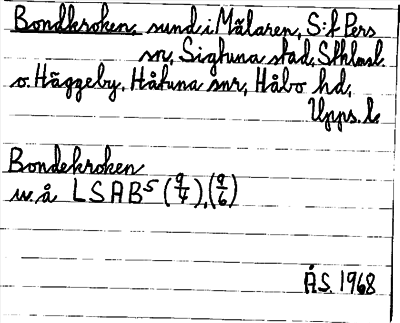 Bondkroken, sund i Mälaren, S:t Pers
sn, Sigtuna stad, Sthlms l.
o. Häggeby, Håtuna snr, Håbo hd,
Upps. l.
Bondekroken
u. å LSAB5 (9/4), (9/6)
Å.S. 1968